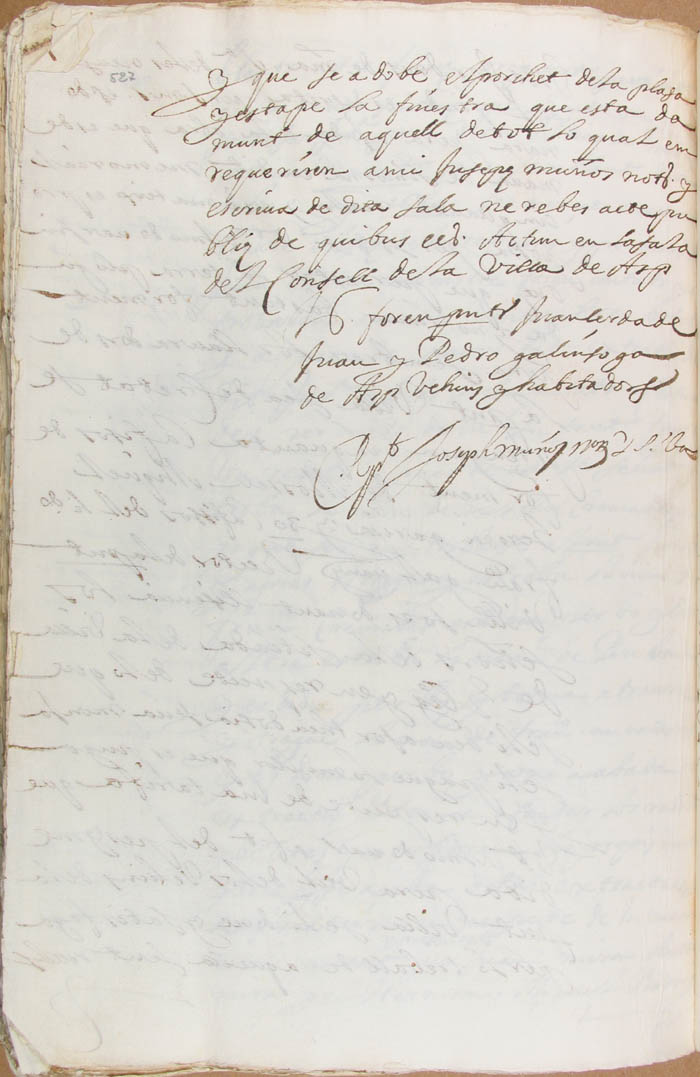 527
y que se adobe el porchet de la plaça
y estape la finestra que esta da
munt de aquell de tot lo qual em
requeriren a mi Jusep muños nott. y
escriva de dita sala ne rebes acte pu
bliq de quibus ett. Actum en la sala
del Consell de la Villa de Asp
ts. foren pnts. Juan Cerda de
Juan y Pedro galinsoga
de Asp Vehins y habitadors
Joseph muñoz